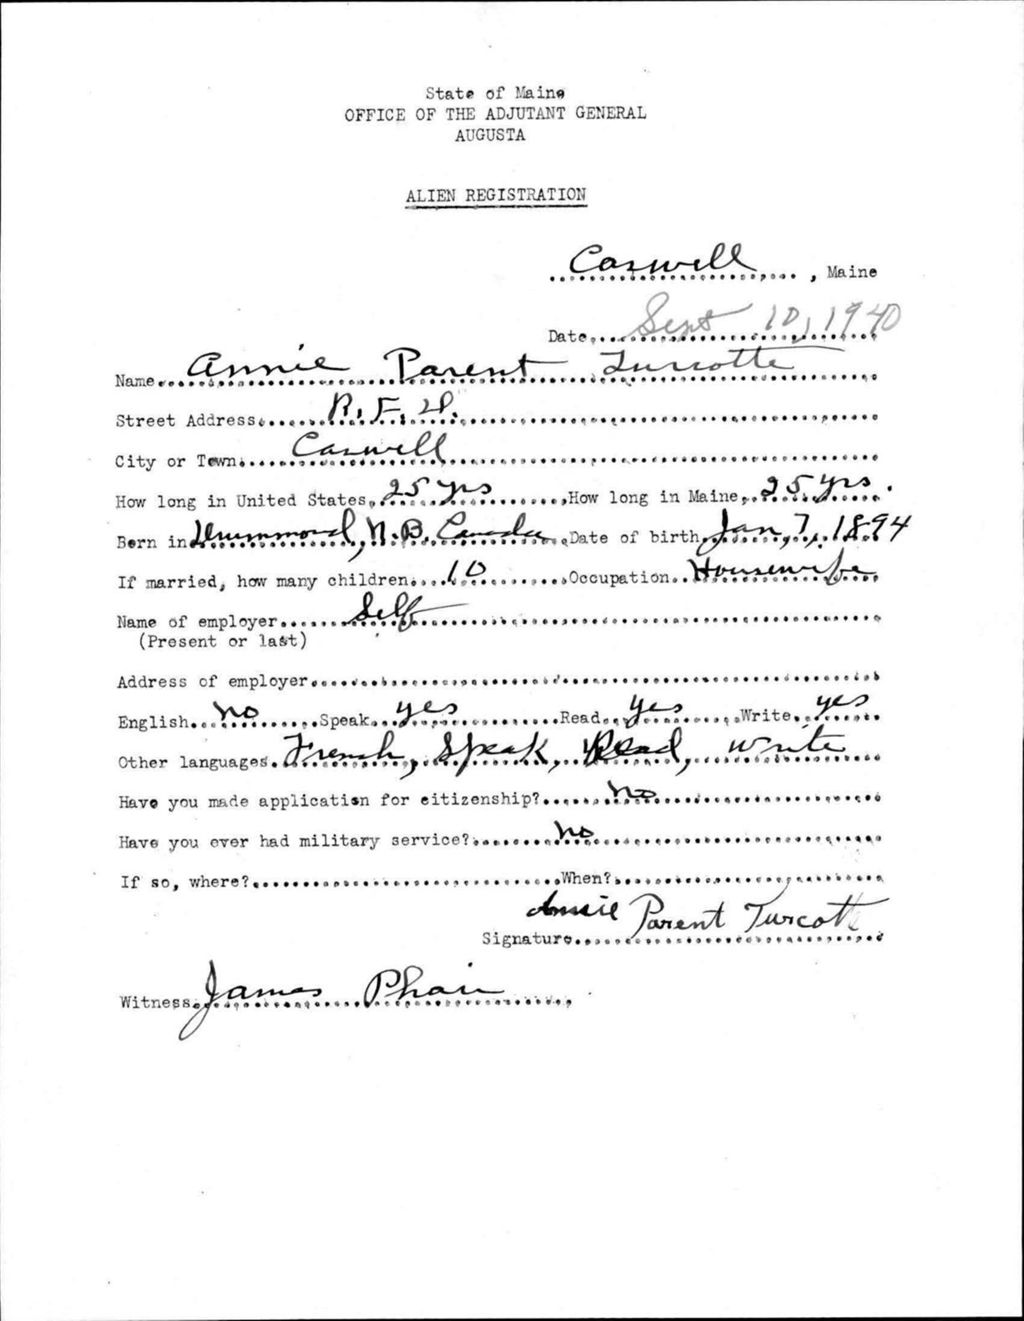 State of Maine
OFFICE OF THE ADJUTANT GENERAL
AUGUSTA
ALIEN REGISTRATION
Caswell, Maine
Date Sept 10, 1940
Name Annie Parent Turcotte
Street Address R.F.D.
City or Town Caswell
How long in United States 25 yrs How long in Maine 25 yrs.
Born in Drummond, N.B. Canada Date of birth Jan, 7, 1894
If married, how many children 10 Occupation Housewife
Name of employer Self
(Present or last)
Address of employer
English no Speak yes Read yes Write yes
Other languages French, Speak, Read, write
Have you made application for citizenship? no
Have you ever had military service? no
If so, where? When?
Annie Parent Turcotte
Signature
Witness James Phair